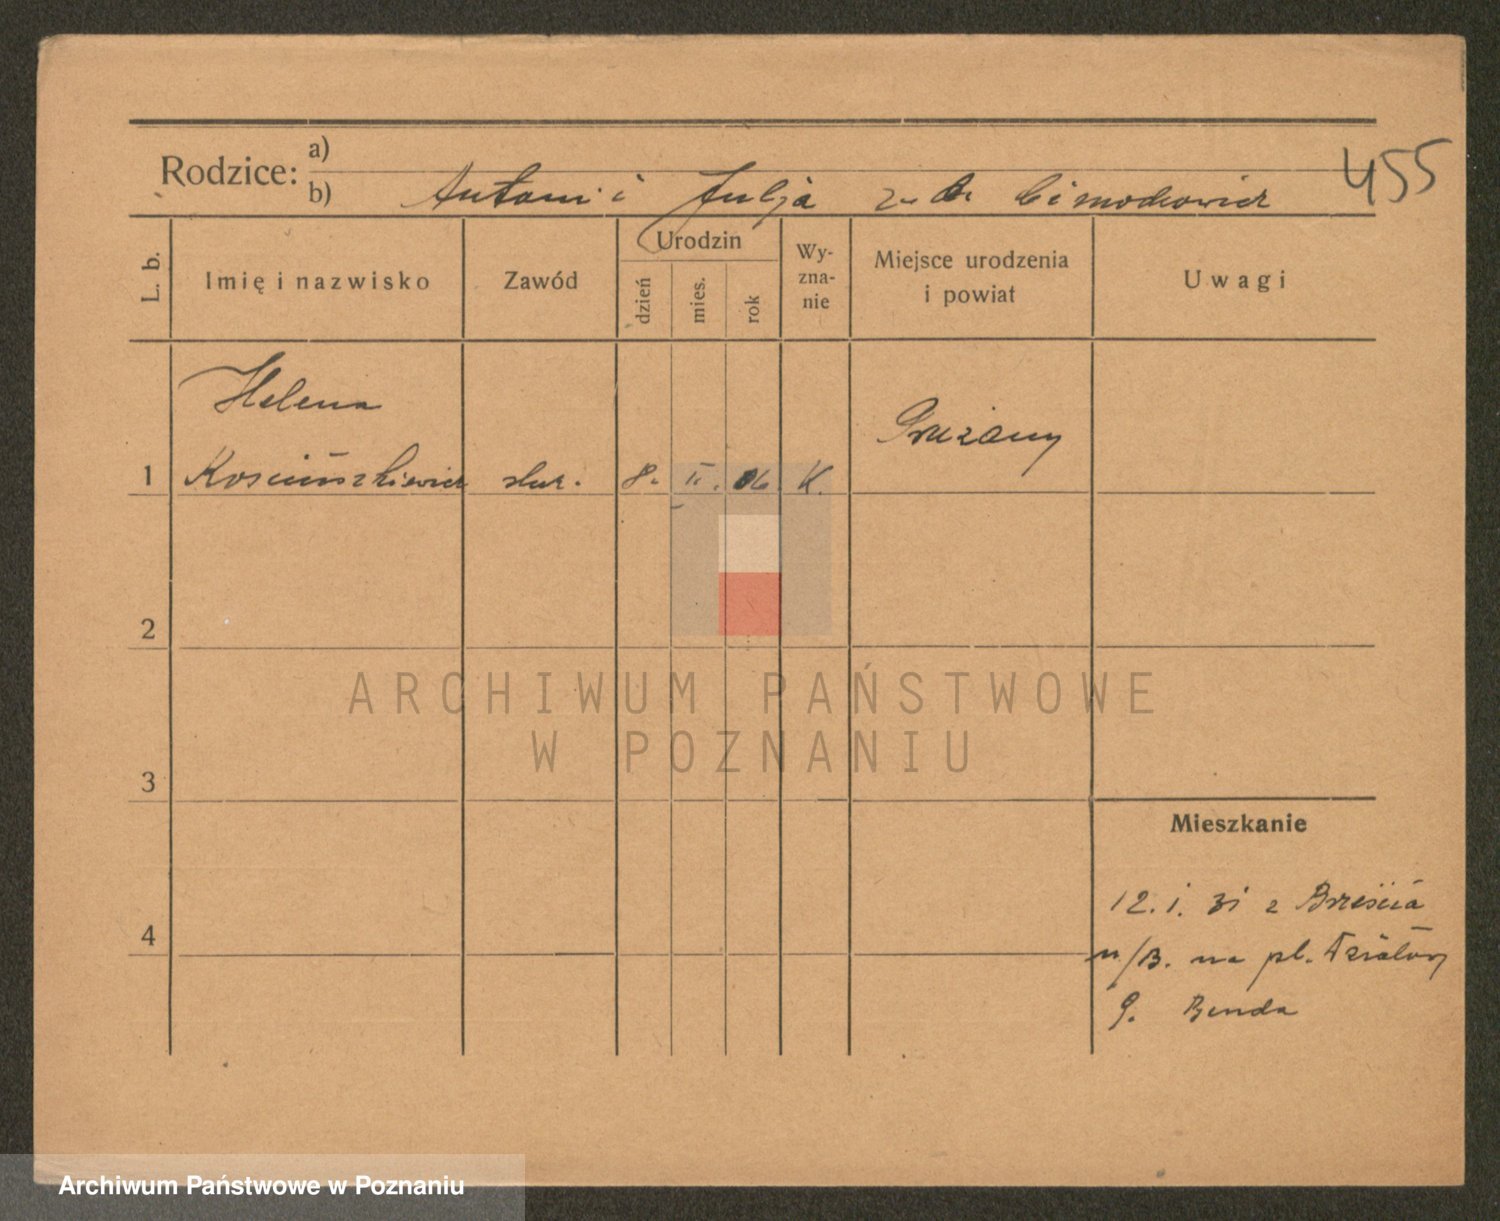 455
Rodzice: a)
b) Antoni i Julja z d. Cimochowicz
L. b.
Imię i nazwisko
Zawód
Urodzin
dzień
mies.
rok
Wy-
zna-
nie
Miejsce urodzenia
i powiat
Uwagi
Helena
Prużany
1 Kościuszkiewicz służ. 8. II. 06 K.
2
3
4
Mieszkanie
12. I. 31 z Brześcia
n/B. na pl. Działowy
9. Benda
ARCHIWUM PAŃSTWOWE
W POZNANIU
Archiwum Państwowe w Poznaniu